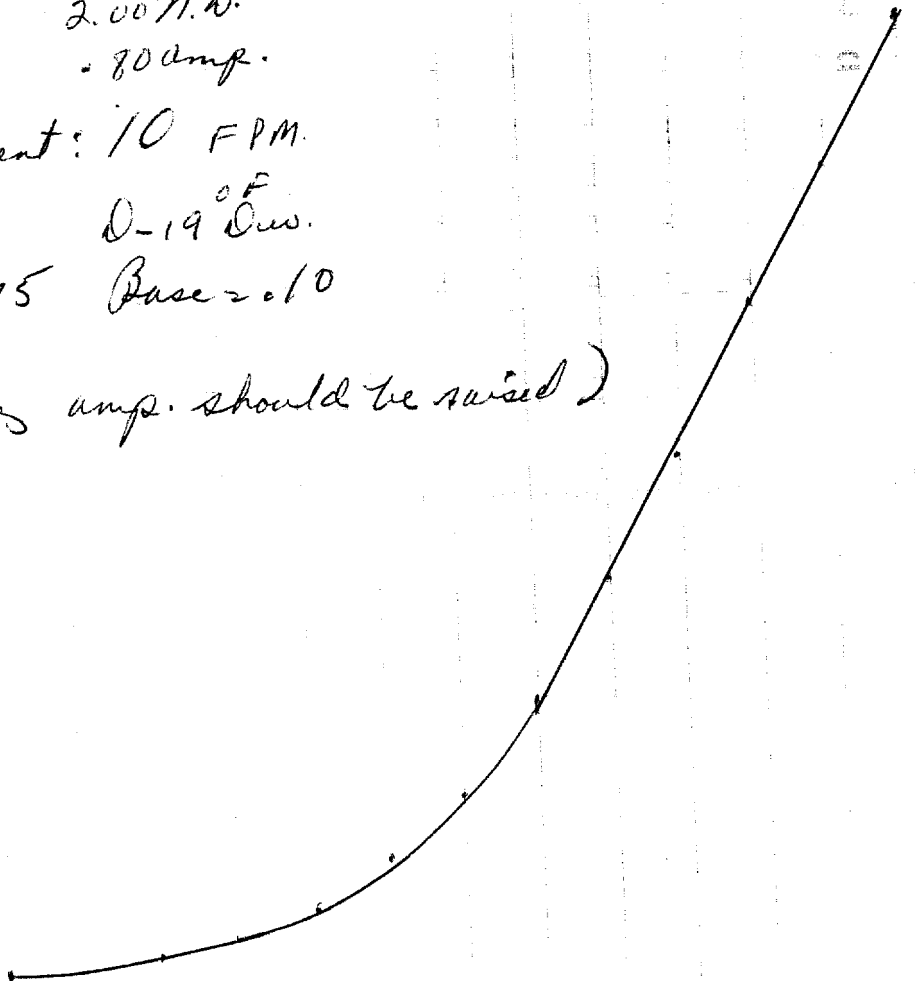 2.00 N.D.
.80 amp.
ent: 10 FPM.
D-19 °F Dev.
5 Base = .10
amp. should be raised)